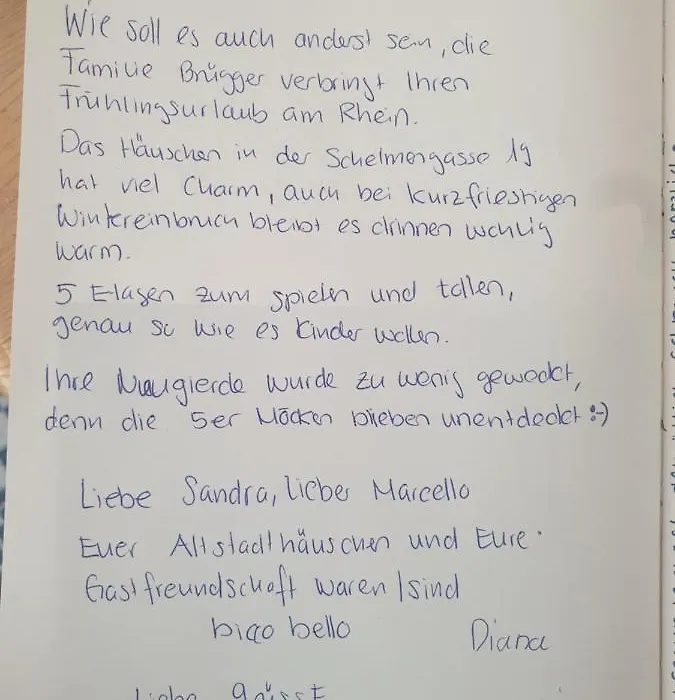 Wie soll es auch anderst sein, die
Familie Brügger verbringt Ihren
Frühlingsurlaub am Rhein.
Das Häuschen in der Schelmengasse 19
hat viel Charm, auch bei kurzfriestigen
Wintereinbruch bleibt es drinnen wohlig
warm.
5 Etagen zum spielen und tollen,
genau so wie es Kinder wollen.
Ihre Neugierde wurde zu wenig geweckt,
denn die 5er Möcken blieben unentdeckt :-)
Liebe Sandra, lieber Marcello
Euer Altstadthäuschen und Eure
Gastfreundschaft waren/sind
bico bello
Diana
Liebe Grüsse